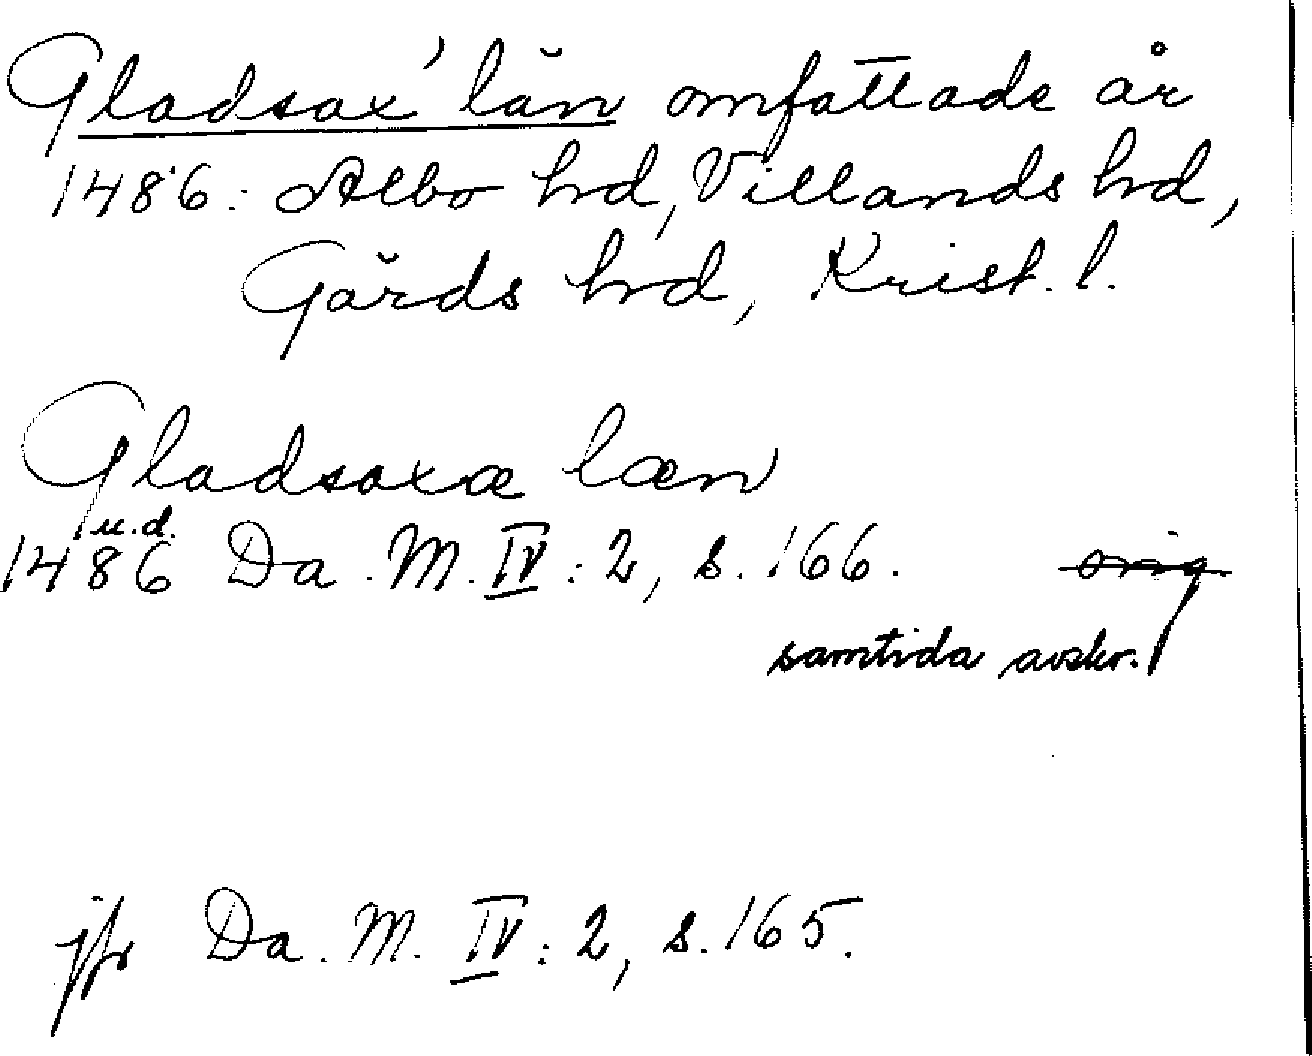 Gladsax' län omfattade år
1486: Albo hd, Villands hd,
Gärds hd, Krist. l.
Gladsaxæ læn
u.d.
1486 Da. M. IV: 2, s. 166. orig
samtida avskr.
jfr Da. M. IV: 2, s. 165.